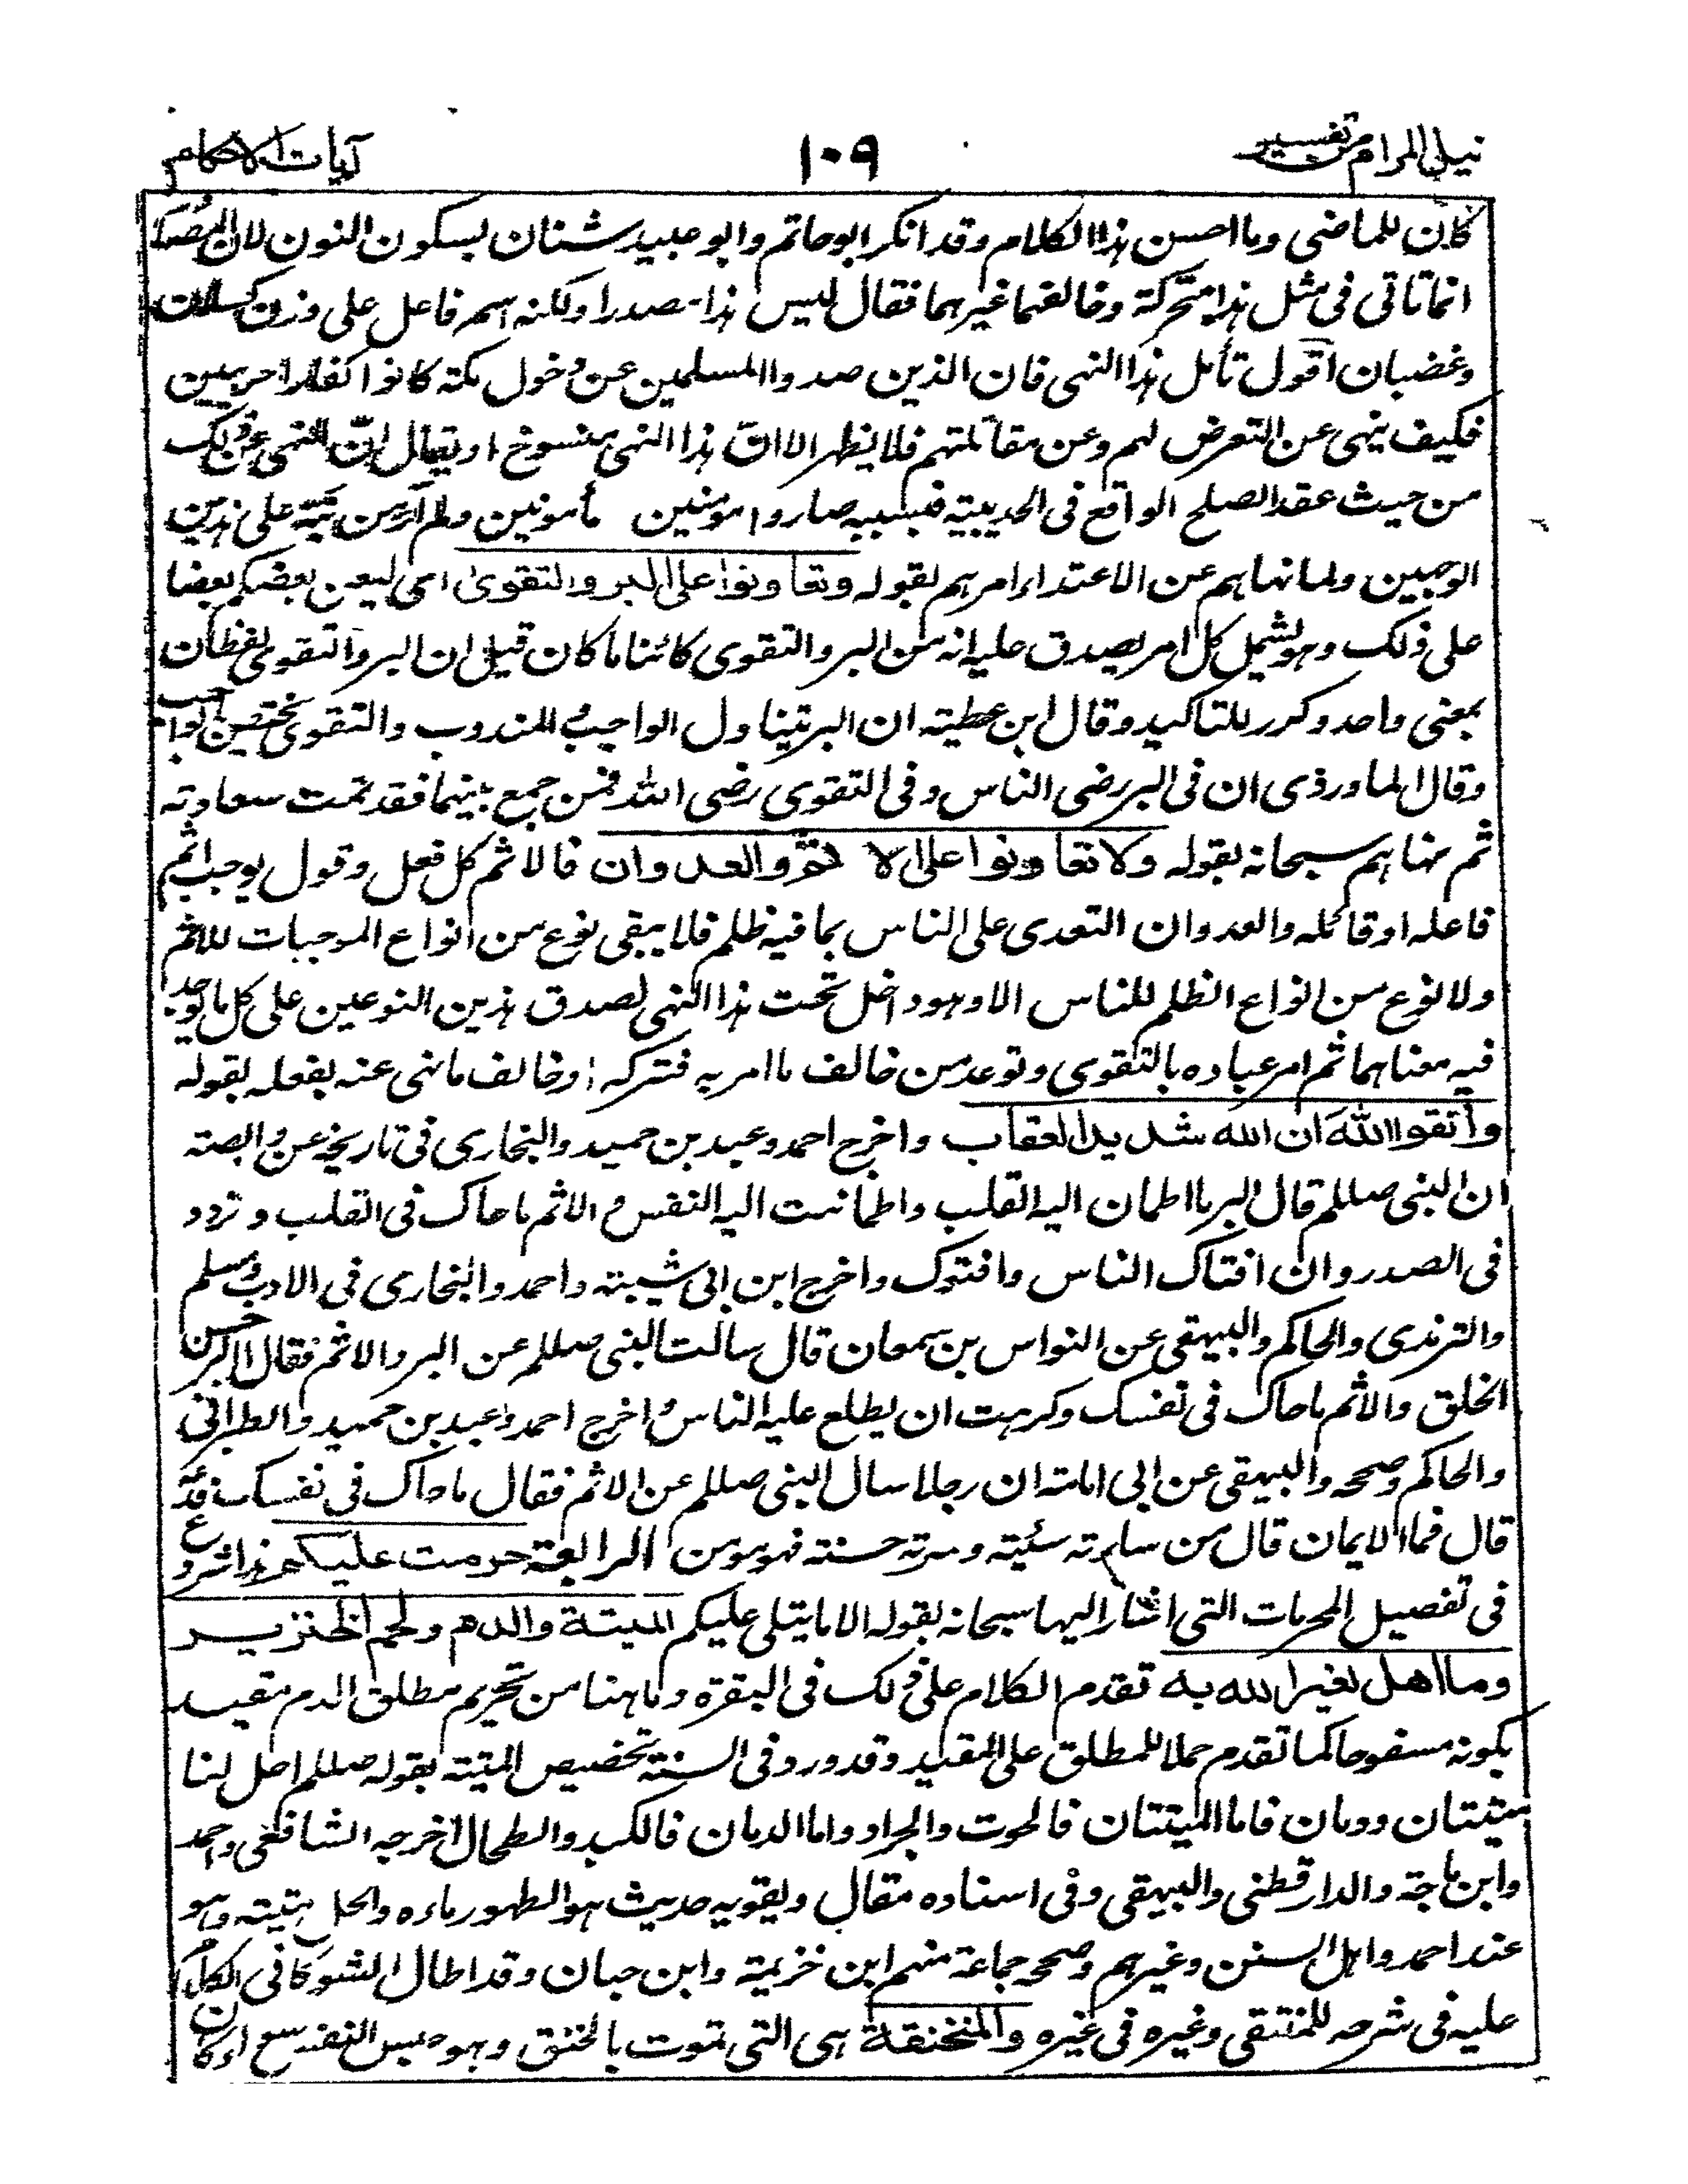 نيل المرام من تفسير
١٠٩
آيات الاحكام
كان للماضى وما احسن هذا الكلام وقد انكر ابو حاتم وابو عبيد شنان بسكون النون لان المصادر
انما تاتى فى مثل هذا متحركة وخالفهما غيرهما فقال ليس هذا مصدرا ولكنه اسم فاعل على وزن كسلان
وغضبان اقول تأمل هذا النهى فان الذين صدوا المسلمين عن دخول مكة كانوا كفارا حربيين
فكيف ينهى عن التعرض لهم وعن مقاتلتهم فلا يظهر الا ان هذا النهى منسوخ او يقال ان النهى عن ذلك
من حيث عقد الصلح الواقع فى الحديبية فبسببه صاروا مؤمنين مأمونين ولم ار من نبه على هذين
الوجهين ولما نهاهم عن الاعتداء امرهم بقوله وتعاونوا على البر والتقوى اى ليعن بعضكم بعضا
على ذلك وهو يشمل كل امر يصدق عليه انه من البر والتقوى كائنا ما كان قيل ان البر والتقوى لفظان
بمعنى واحد وكرر للتاكيد وقال ابن عطية ان البر يتناول الواجب والمندوب والتقوى تختص بالواجب
وقال الماوردى ان فى البر رضى الناس وفى التقوى رضى الله فمن جمع بينهما فقد تمت سعادته
ثم نهاهم سبحانه بقوله ولا تعاونوا على الاثم والعدوان فالاثم كل فعل وقول يوجب اثم
فاعله او قائله والعدوان التعدى على الناس بما فيه ظلم فلا يبقى نوع من انواع الموجبات للاثم
ولا نوع من انواع الظلم للناس الا وهو داخل تحت هذا النهى لصدق هذين النوعين على كل ما يوجد
فيه معناهما ثم امر عباده بالتقوى وتوعد من خالف ما امر به فتركه او خالف ما نهى عنه بفعله بقوله
واتقوا الله ان الله شديد العقاب واخرج احمد وعبد بن حميد والبخارى فى تاريخه عن وابصة
ان النبى صللم قال البر ما اطمان اليه القلب واطمانت اليه النفس والاثم ما حاك فى القلب وتردد
فى الصدر وان افتاك الناس وافتوك واخرج ابن ابى شيبة واحمد والبخارى فى الادب ومسلم
والترمذى والحاكم والبيهقى عن النواس بن سمعان قال سالت النبى صللم عن البر والاثم فقال البر حسن
الخلق والاثم ما حاك فى نفسك وكرهت ان يطلع عليه الناس واخرج احمد وعبد بن حميد والطبرانى
والحاكم وصححه والبيهقى عن ابى امامة ان رجلا سال النبى صللم عن الاثم فقال ما حاك فى نفسك فدعه
قال فما الايمان قال من ساءته سيئته وسرته حسنته فهو مؤمن الرابعة حرمت عليكم هذا شروع
فى تفصيل المحرمات التى اشار اليها سبحانه بقوله الا ما يتلى عليكم الميتة والدم ولحم الخنزير
وما اهل لغير الله به تقدم الكلام على ذلك فى البقرة وما هنا من تحريم مطلق الدم مقيد
بكونه مسفوحا كما تقدم حملا للمطلق على المقيد وقد ورد فى السنة تخصيص الميتة بقوله صللم احل لنا
ميتتان ودمان فاما الميتتان فالحوت والجراد واما الدمان فالكبد والطحال اخرجه الشافعى واحمد
وابن ماجة والدارقطنى والبيهقى وفى اسناده مقال ويقويه حديث هو الطهور ماءه والحل ميتته وهو
عند احمد واهل السنن وغيرهم وصححه جماعة منهم ابن خزيمة وابن حبان وقد اطال الشوكانى الكلام
عليه فى شرحه للمنتقى وغيره فى غيره والمنخنقة هى التى تموت بالخنق وهو حبس النفس سواء كان